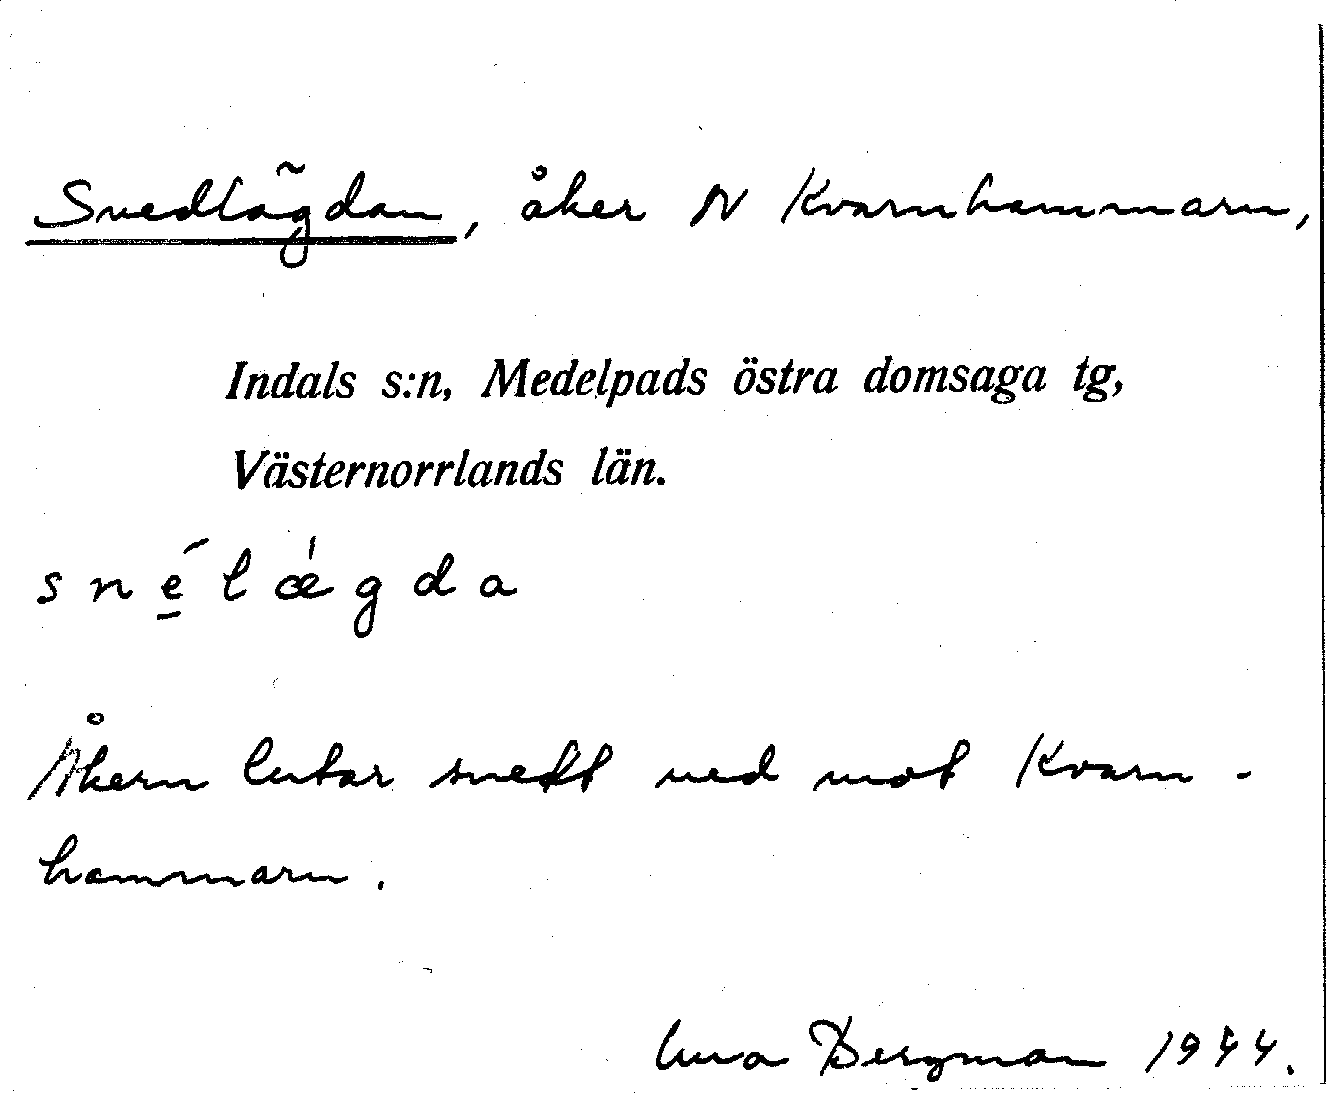 Snedlägdan, åker N Kvarnhammarn,
Indals s:n, Medelpads östra domsaga tg,
Västernorrlands län.
sne̲´læ´gda
Åkern lutar snett ned mot Kvarn-
hammarn.
Bergman 1944.